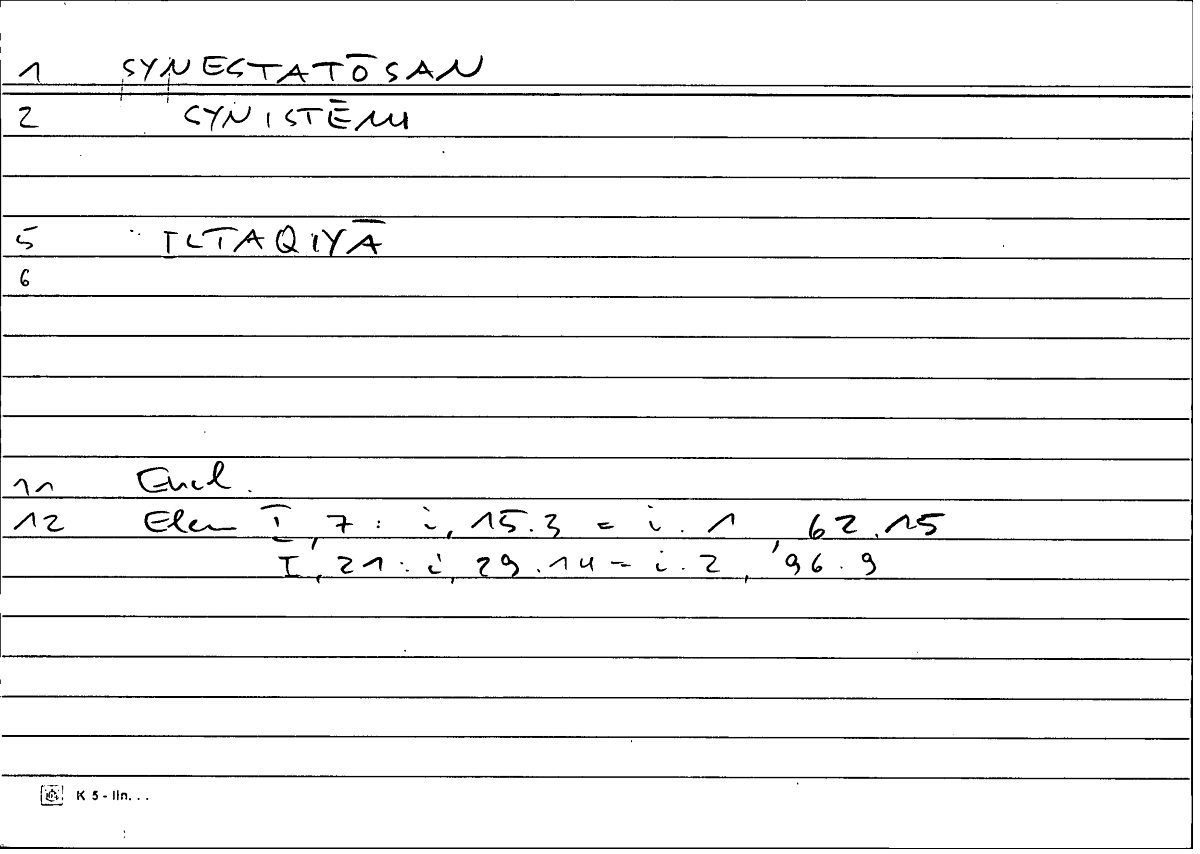 1 SYNESTATŌSAN
2 SYNISTĒMI
5 ILTAQIYĀ
6
11 Eucl.
12 Elem I, 7 : i, 15.3 = i. 1, 62.15
I, 21 : i, 29.14 = i. 2, 96.9
K 5 - lln. . .